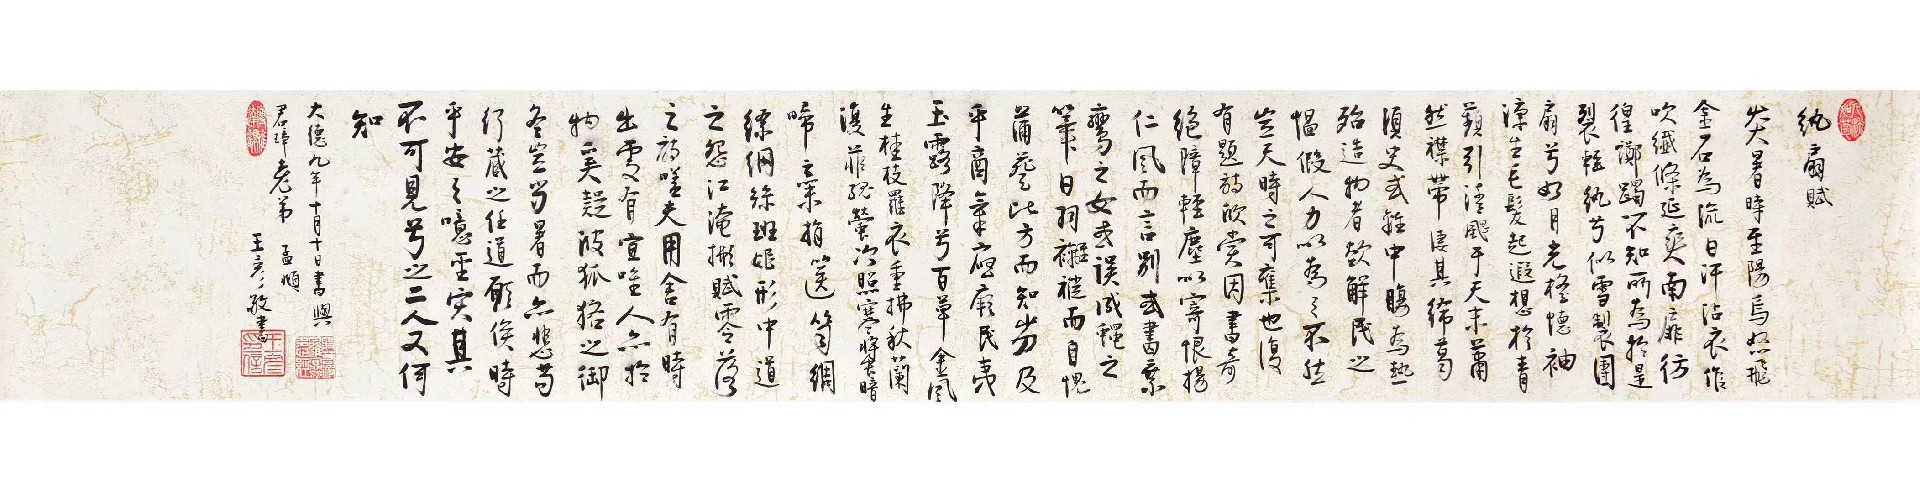 紈扇賦
炎暑時至陽烏怒飛
金石為流日汗沾衣作
吹纖絺延爽南扉彷
徨躑躅不知所為於是
裂輕紈兮似雪製團
扇兮如月光生懷袖
涼生毛髮起遐想於青
蘋引清颸于天末蕭
然襟帶淒其絺葛
須臾或離中腕為熱
殆造物者欲解民之
慍假人力以為之不然
豈天時之可奪也復
有題詩欣賞因書奇
絕障輕塵以寄恨揚
仁風而言別或書乘
鸞之女或誤成蠅之
筆日羽襬褷而自愧
蒲葵比方而知劣及
乎商氣應廠民夷
玉露降兮百草金風
生桂枝羅衣重拂秋蘭
復菲殘螢冷照寒螿暗
啼之棄捐篋笥綢
繆網絲班姬形中道
之怨江淹擬賦零落
之詩嗟夫用舍有時
出處有宜唯人亦於
物奚疑彼狐狢之御
冬豈當暑而亦悲苟
行藏之任道顧俟時
乎安之噫聖實其
不可見兮之二人又何
知
大德九年十月十日書與
君璋老弟 孟頫
王彥敬書